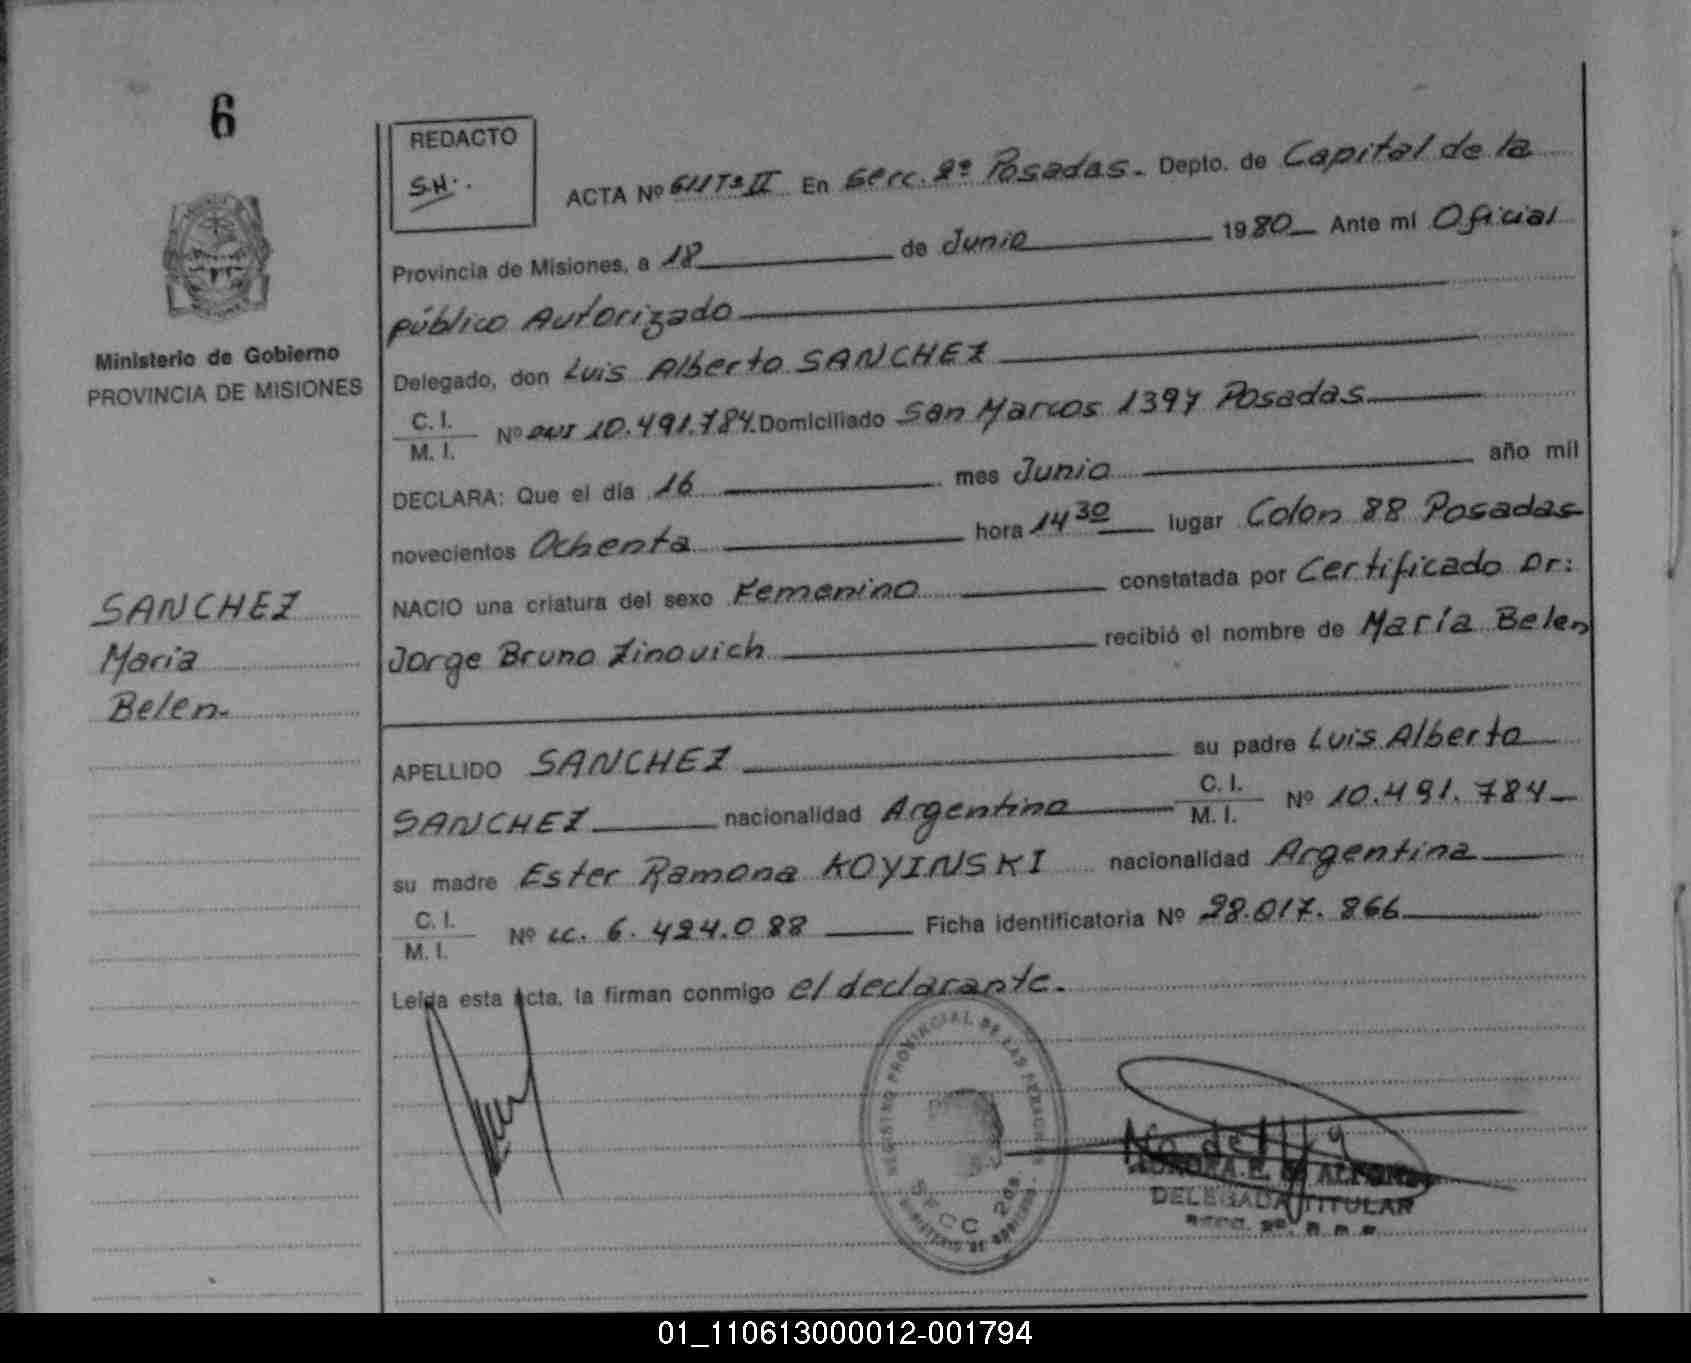 6
REDACTO
S.H.
ACTA Nº 611 Tº II En Secc. 2ª Posadas. Depto. de Capital de la
Provincia de Misiones, a 18 de Junio 1980 Ante mí Oficial
público Autorizado
Delegado, don Luis Alberto SANCHEZ
C. I.
M. I. Nº DNI 10.491.784. Domiciliado San Marcos 1397 Posadas
DECLARA: Que el día 16 mes Junio año mil
novecientos Ochenta hora 14 30 lugar Colon 88 Posadas
NACIO una criatura del sexo Femenino constatada por Certificado Dr:
Jorge Bruno Zinovich recibió el nombre de María Belen
APELLIDO SANCHEZ su padre Luis Alberto
SANCHEZ nacionalidad Argentino C. I. M. I. Nº 10.491.784
su madre Ester Ramona KOYINSKI nacionalidad Argentina
C. I.
M. I. Nº LC. 6.424.088 Ficha identificatoria Nº 28.017.866
Leída esta acta, la firman conmigo el declarante.
Ministerio de Gobierno
PROVINCIA DE MISIONES
SANCHEZ
Maria
Belen
REGISTRO PROVINCIAL DE LAS PERSONAS
SECC 2da.
MINISTERIO DE GOBIERNO
DELEGADA TITULAR
01_110613000012-001794